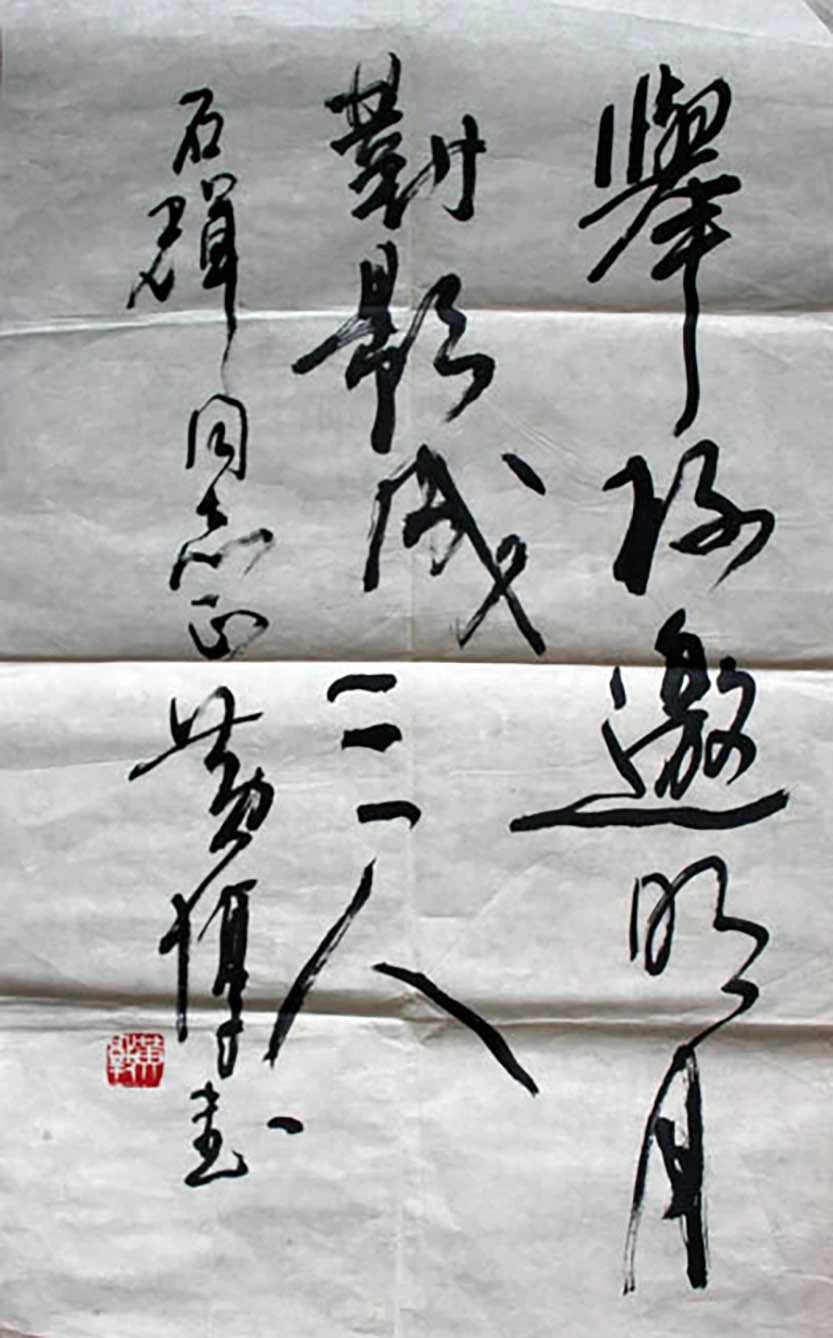 舉杯邀明月
對影成三人
石輝同志正 黄惇書